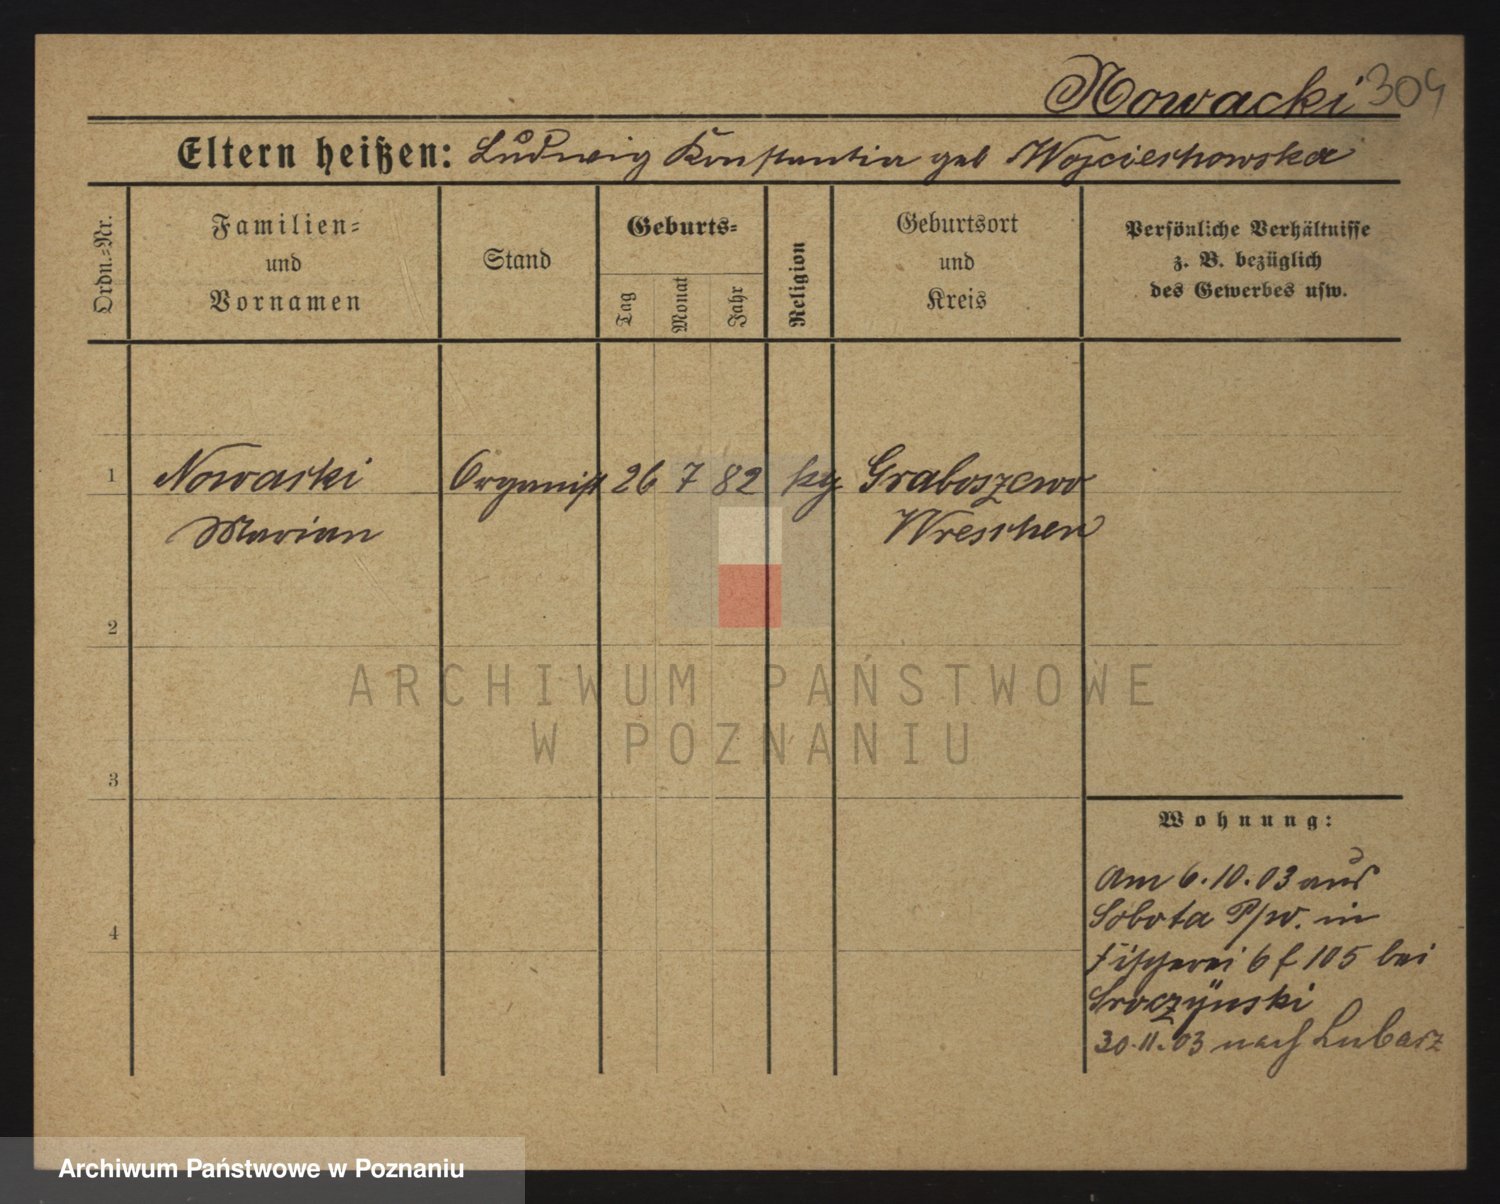 Nowacki 304
Eltern heißen: Ludwig Konstantia geb Wojciechowska
Ordn.-Nr.
Familien-
und
Vornamen
Stand
Geburts-
Tag
Monat
Jahr
Religion
Geburtsort
und
Kreis
Persönliche Verhältnisse
z. B. bezüglich
des Gewerbes usw.
1 Nowacki Organist 26 7 82 kg Graboszewo
Marian Wreschen
2
ARCHIWUM PAŃSTWOWE
W POZNANIU
3
Wohnung:
Am 6.10.03 aus
Sobota P/w. in
Fischerei 6 f 105 bei
Sroczÿnski
30.11.03 nach Lubasz
4
Archiwum Państwowe w Poznaniu